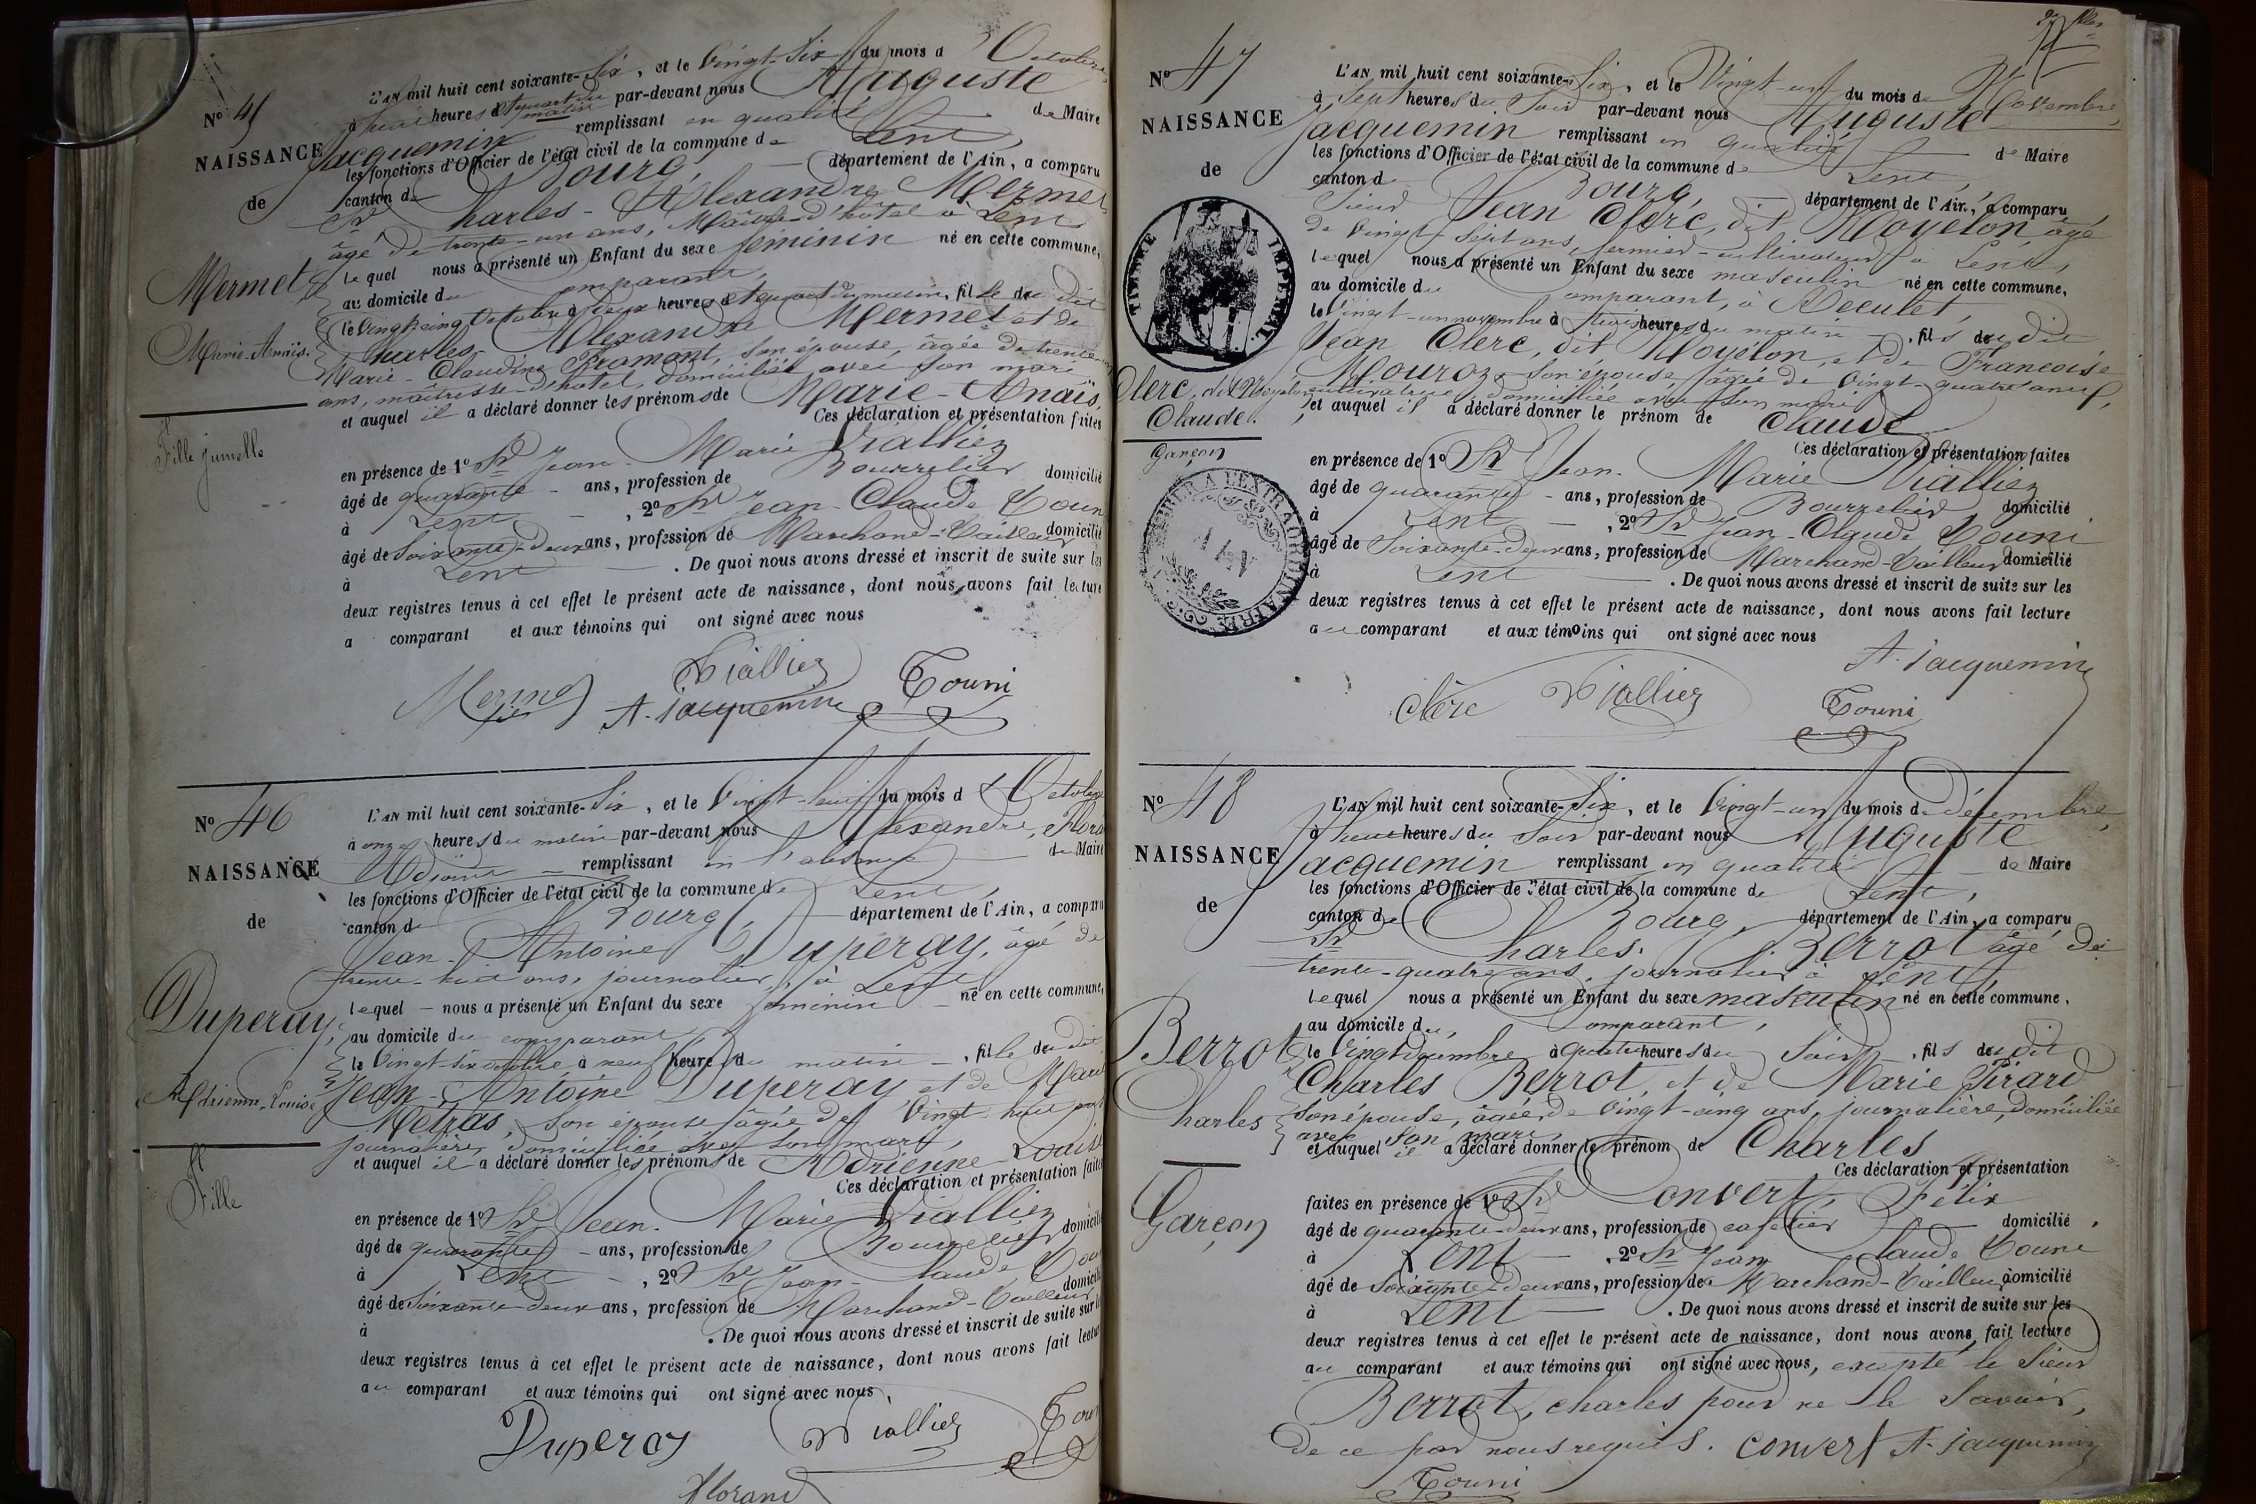 N° 45
NAISSANCE
de
Mermet
Marie-Anaïs.
Fille jumelle
L'AN mil huit cent soixante-six, et le vingt-six du mois d'Octobre
à heures et quart du matin par-devant nous Auguste
Jacquemin remplissant en qualité de Maire
les fonctions d'Officier de l'état civil de la commune de Lent,
canton de Bourg, département de l'Ain, a comparu
Sr Charles-Alexandre Mermet
âgé de trente-un ans, Maître-d'hôtel à Lent
lequel nous a présenté un Enfant du sexe féminin né en cette commune,
au domicile du comparant,
le vingt-cinq Octobre à deux heures et quart du matin, fille du dit
Charles Alexandre Mermet et de
Marie-Claudine Fromont, son épouse, âgée de trente
ans, maîtresse-d'hôtel, domiciliée avec son mari
et auquel il a déclaré donner les prénoms de Marie-Anaïs,
Ces déclaration et présentation faites
en présence de 1° Sr Jean-Marie Viallier
âgé de quarante ans, profession de Bourrelier domicilié
à Lent, 2° Sr Jean-Claude Touni
âgé de soixante-deux ans, profession de Marchand-Tailleur domicilié
à Lent. De quoi nous avons dressé et inscrit de suite sur les
deux registres tenus à cet effet le présent acte de naissance, dont nous avons fait lecture
a comparant et aux témoins qui ont signé avec nous
Mermet Viallier Touni
A. Jacquemin
N° 46
NAISSANCE
de
Duperay,
Adrienne-Louise
Fille
L'AN mil huit cent soixante-six, et le vingt-huit du mois d'Octobre
à onze heures du matin par-devant nous Alexandre, Floran
Adjoint remplissant en l'absence de Maire
les fonctions d'Officier de l'état civil de la commune de Lent,
canton de Bourg, département de l'Ain, a comparu
Jean-Antoine Duperay, âgé de
trente-huit ans, journalier, à Lent
lequel nous a présenté un Enfant du sexe féminin né en cette commune,
au domicile du comparant
le vingt-six octobre à neuf heures du matin, fille du dit
Jean-Antoine Duperay et de Marie
Métras, son épouse âgée de vingt-huit ans
journalière, domiciliée avec son mari,
et auquel il a déclaré donner les prénoms de Adrienne-Louise
Ces déclaration et présentation faites
en présence de 1° Sr Jean-Marie Viallier
âgé de quarante ans, profession de Bourrelier domicilié
à Lent, 2° Sr Jean-Claude Touni
âgé de soixante-deux ans, profession de Marchand-Tailleur domicilié
à . De quoi nous avons dressé et inscrit de suite sur les
deux registres tenus à cet effet le présent acte de naissance, dont nous avons fait lecture
au comparant et aux témoins qui ont signé avec nous,
Duperay Viallier Touni
Florand
N° 47
NAISSANCE
de
TIMBRE IMPÉRIAL
Clerc, dit Moyelon
Claude.
Garçon
TIMBRÉ A L'EXTRAORDINAIRE
L'AN mil huit cent soixante-six, et le vingt-un du mois de Novembre,
à Sept heures du soir par-devant nous Auguste
Jacquemin remplissant en qualité de Maire
les fonctions d'Officier de l'état civil de la commune de Lent,
canton de Bourg, département de l'Ain, a comparu
Sieur Jean Clerc, dit Moyelon, âgé
de vingt-sept ans, fermier-cultivateur à Lent,
lequel nous a présenté un Enfant du sexe masculin né en cette commune,
au domicile du comparant, à
le vingt-un novembre à trois heures du matin, fils du dit
Jean Clerc, dit Moyélon, et de Françoise
Mouroz, son épouse, âgée de vingt-quatre ans,
cultivatrice, domiciliée avec son mari
et auquel il a déclaré donner le prénom de Claude
Ces déclaration et présentation faites
en présence de 1° Sr Jean-Marie Viallier
âgé de quarante ans, profession de Bourrelier domicilié
à Lent, 2° Sr Jean-Claude Touni
âgé de soixante-deux ans, profession de Marchand-Tailleur domicilié
à Lent. De quoi nous avons dressé et inscrit de suite sur les
deux registres tenus à cet effet le présent acte de naissance, dont nous avons fait lecture
au comparant et aux témoins qui ont signé avec nous
A. Jacquemin
Clerc Viallier Touni
N° 48
NAISSANCE
de
Berrot
Charles
Garçon
L'AN mil huit cent soixante-six, et le vingt-un du mois de décembre,
à heures du soir par-devant nous Auguste
Jacquemin remplissant en qualité de Maire
les fonctions d'Officier de l'état civil de la commune de Lent,
canton de Bourg, département de l'Ain, a comparu
Sr Charles Berrot âgé de
trente-quatre ans, journalier à Lent
lequel nous a présenté un Enfant du sexe masculin né en cette commune,
au domicile du comparant,
le vingt décembre à quatre heures du soir, fils du dit
Charles Berrot, et de Marie Pirard
son épouse, âgée de vingt-cinq ans, journalière, domiciliée
avec son mari,
et auquel il a déclaré donner le prénom de Charles
Ces déclaration et présentation
faites en présence de 1° Sr Convert, Félix
âgé de quarante-deux ans, profession de cafetier domicilié,
à Lent, 2° Sr Jean Claude Touni
âgé de soixante-deux ans, profession de Marchand-Tailleur domicilié
à Lent. De quoi nous avons dressé et inscrit de suite sur les
deux registres tenus à cet effet le présent acte de naissance, dont nous avons fait lecture
au comparant et aux témoins qui ont signé avec nous, excepté le Sieur
Berrot, charles pour ne le savoir,
de ce par nous requis. Convert A. Jacquemin
Touni